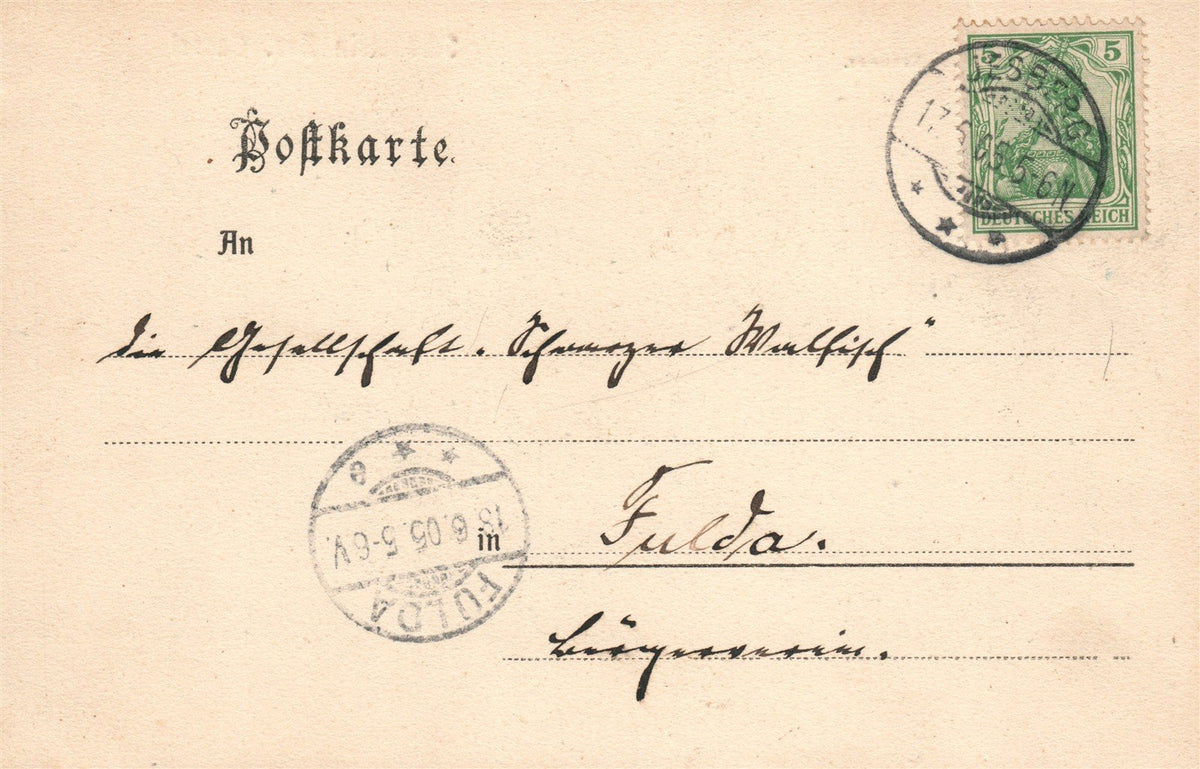 5 5
17.6.05.5-6N
DEUTSCHES REICH
Postkarte.
An
die Gesellschaft „Schwarzer Walfisch“
in Fulda.
Bürgerverein.
e
18.6.05.5-6V.
FULDA